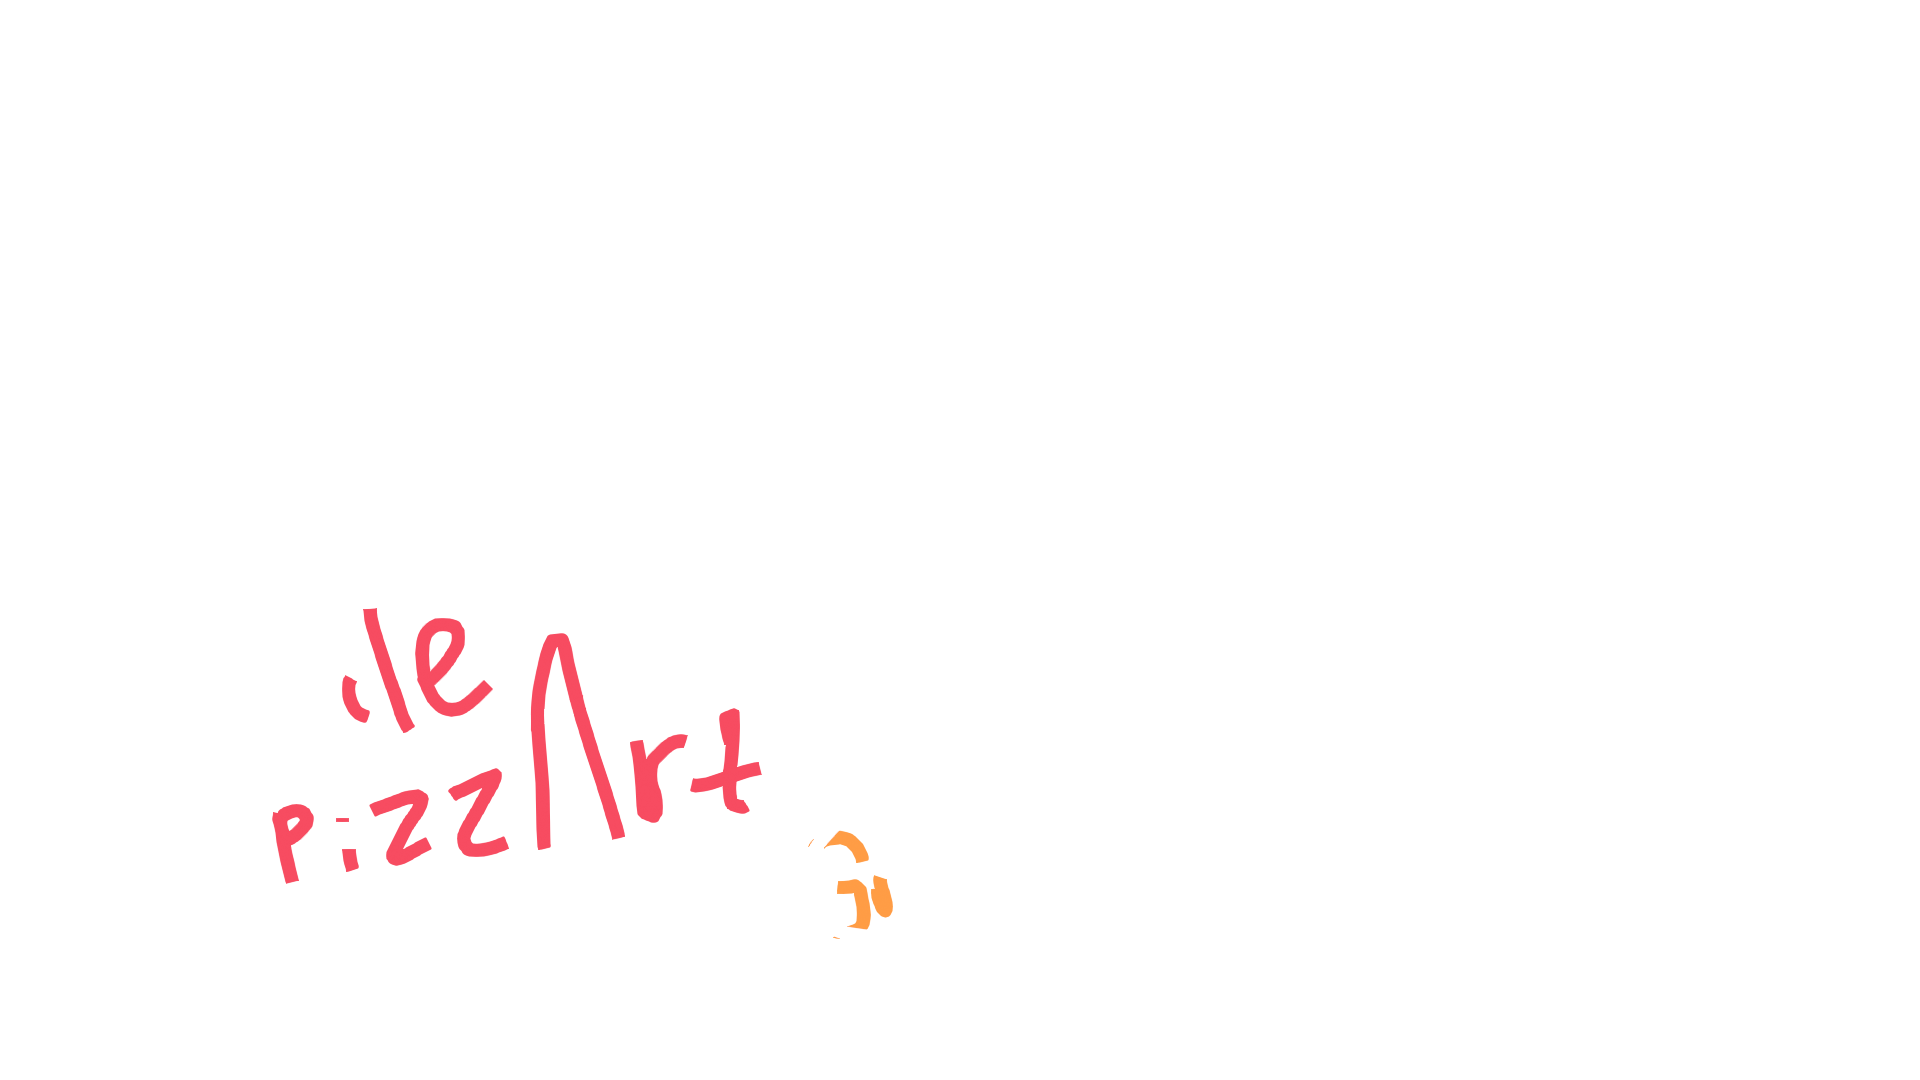 ile
pizzArt